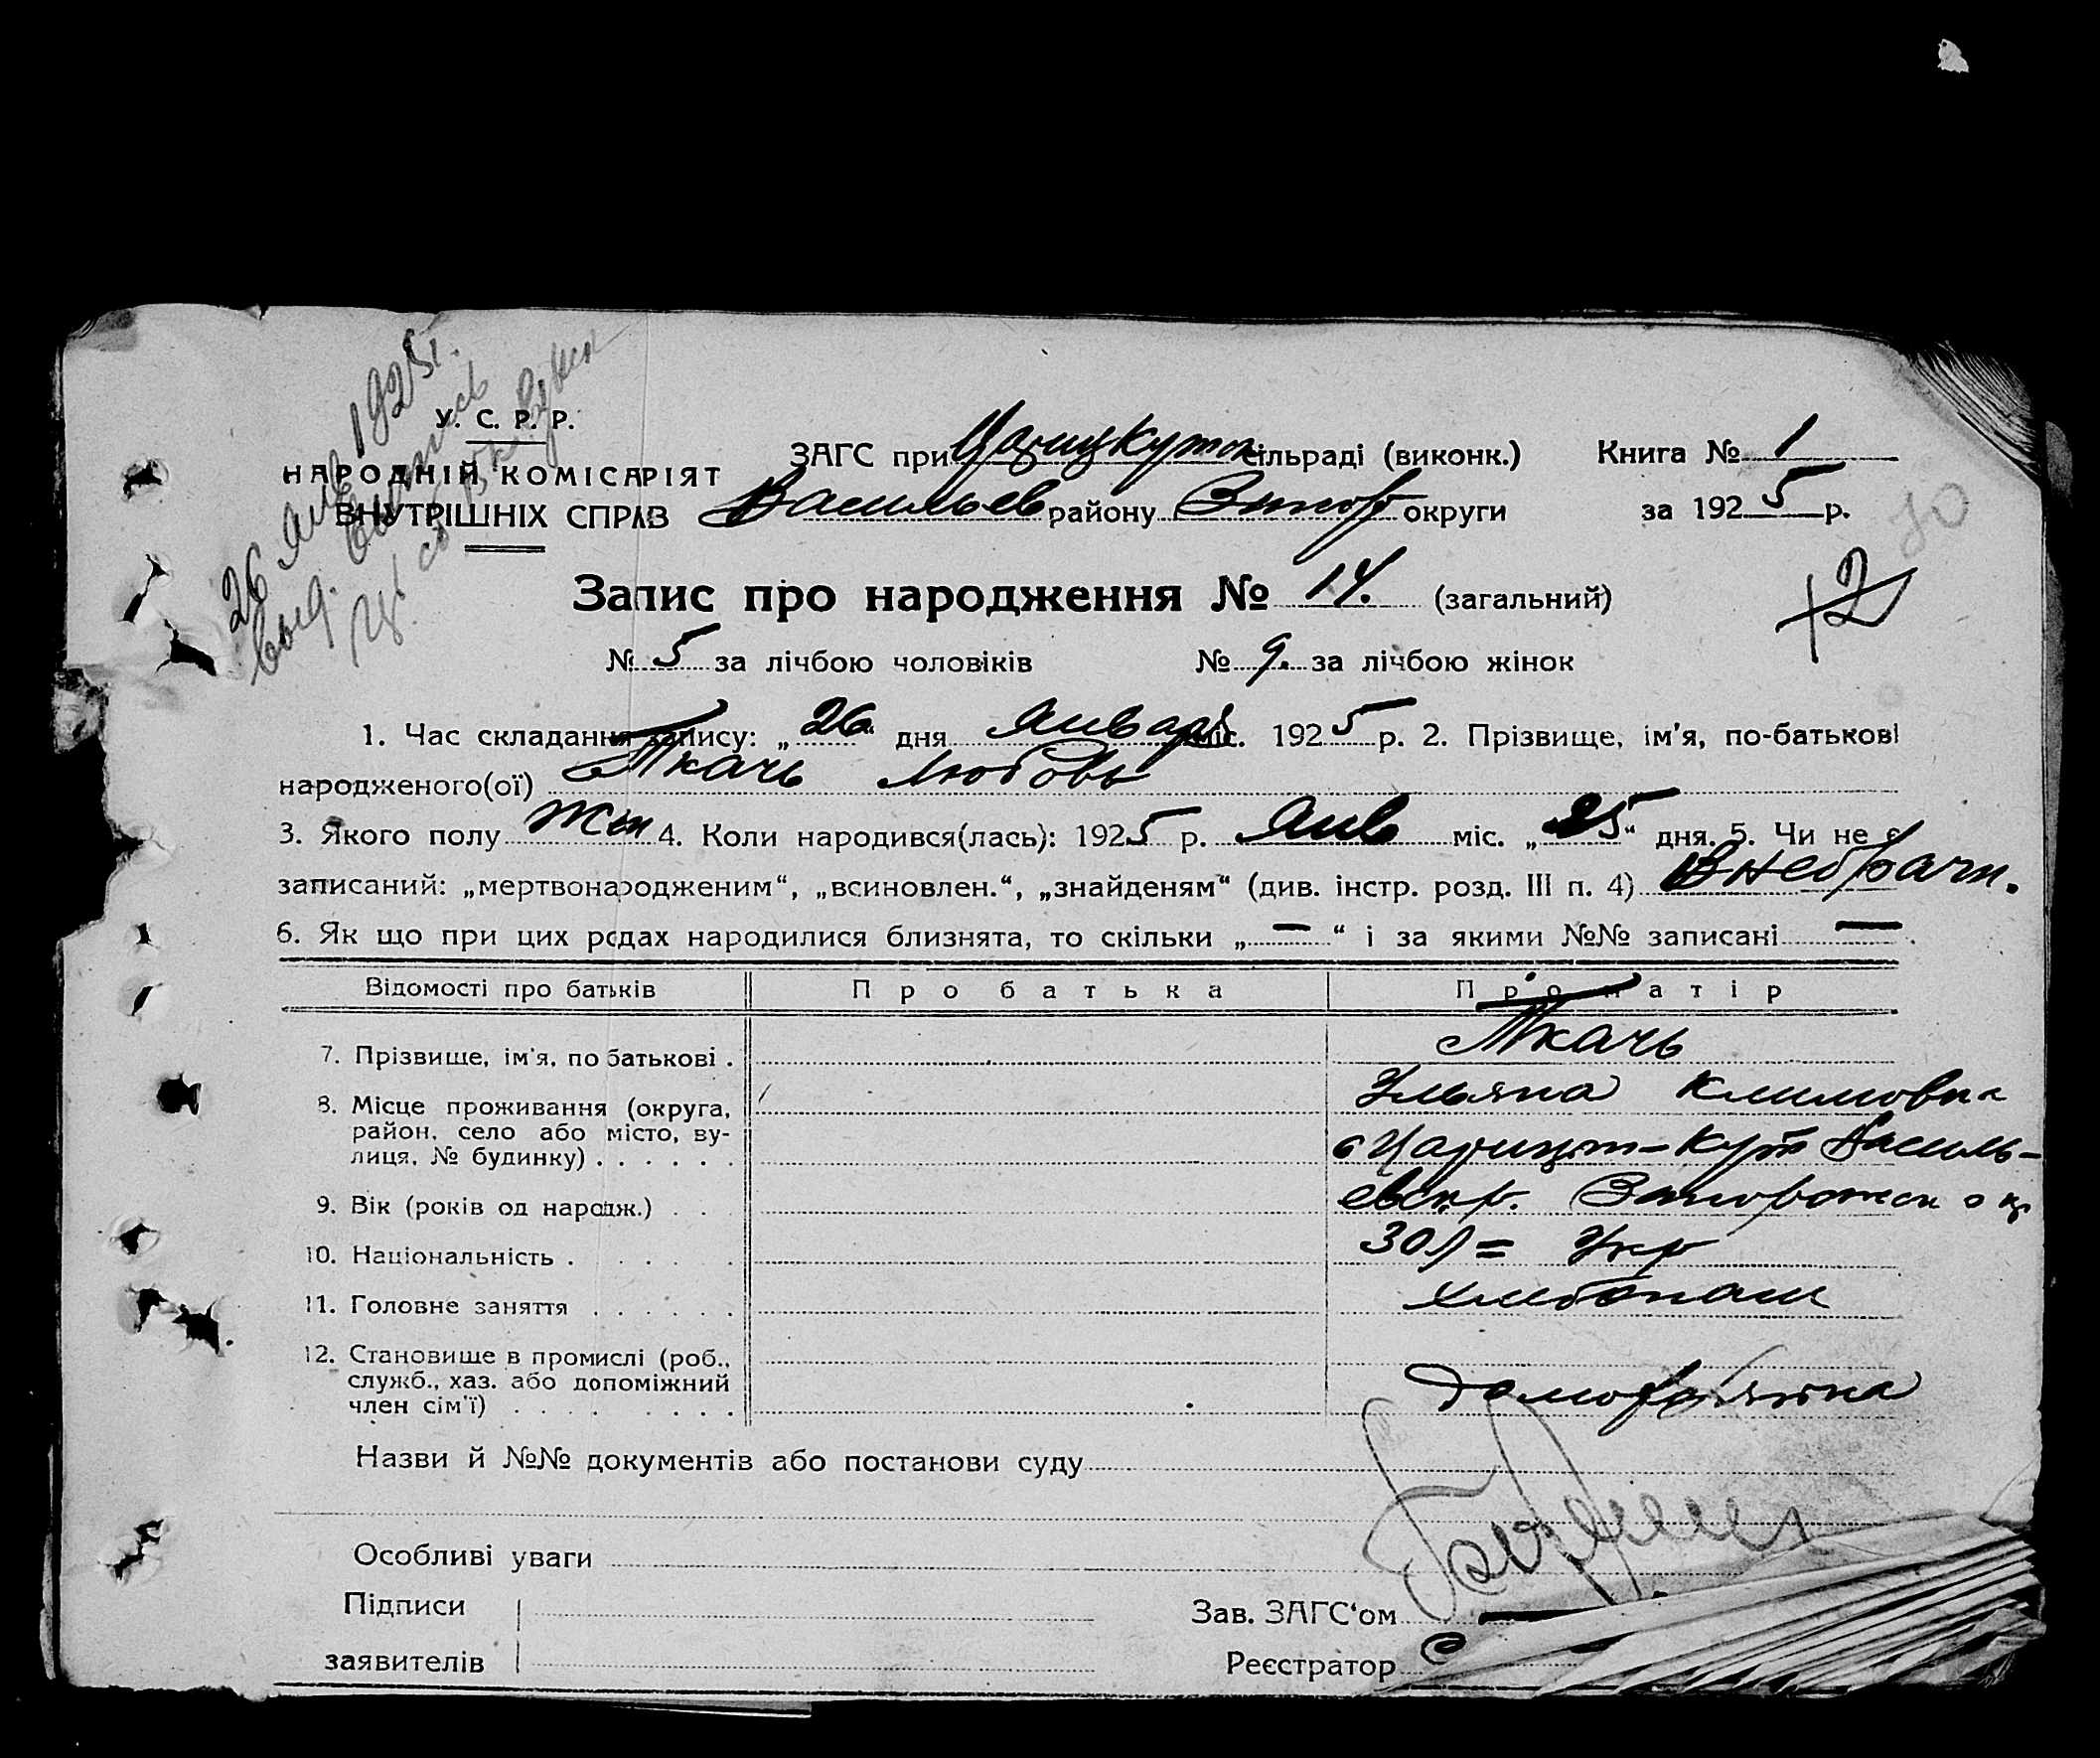 26 Янв 1925 г.
выд. выпись
У. С. Р. Р.
НАРОДНІЙ КОМІСАРІЯТ
ВНУТРІШНІХ СПРАВ
ЗАГС при Царицкутск сільраді (виконк.) Книга № 1
Васильев району Запор округи за 1925 р.
30
12
Запис про народження № 14. (загальний)
№ 5 за лічбою чоловіків № 9. за лічбою жінок
1. Час складання запису: „26“ дня Января міс. 1925 р. 2. Прізвище, ім'я, по-батькові
народженого(ої) Ткачь Любовь
3. Якого полу Жен 4. Коли народився(лась): 1925 р. Янв міс. „25“ дня. 5. Чи не є
записаний: „мертвонародженим“, „всиновлен.“, „знайденям“ (див. інстр. розд. III п. 4) Внебрачн.
6. Як що при цих родах народилися близнята, то скільки „—“ і за якими №№ записані —.
Відомості про батьків Про батька Про матір
7. Прізвище, ім'я, по батькові . Ткачь
Ульяна Климовна
8. Місце проживання (округа,
район, село або місто, ву-
лиця, № будинку) . . . . . . с Царицын-Кут Василь-
9. Вік (років од народж.) . . . евск р. Запорожск ок
10. Національність . . . . . 30 л = Укр
11. Головне заняття . . . . . . хлебопаш
12. Становище в промислі (роб.,
служб., хаз. або допоміжний
член сім'ї) . . . . . . . . . Домохазяйка
Назви й №№ документів або постанови суду
Особливі уваги
Підписи
заявителів
Зав. ЗАГС'ом
Реєстратор